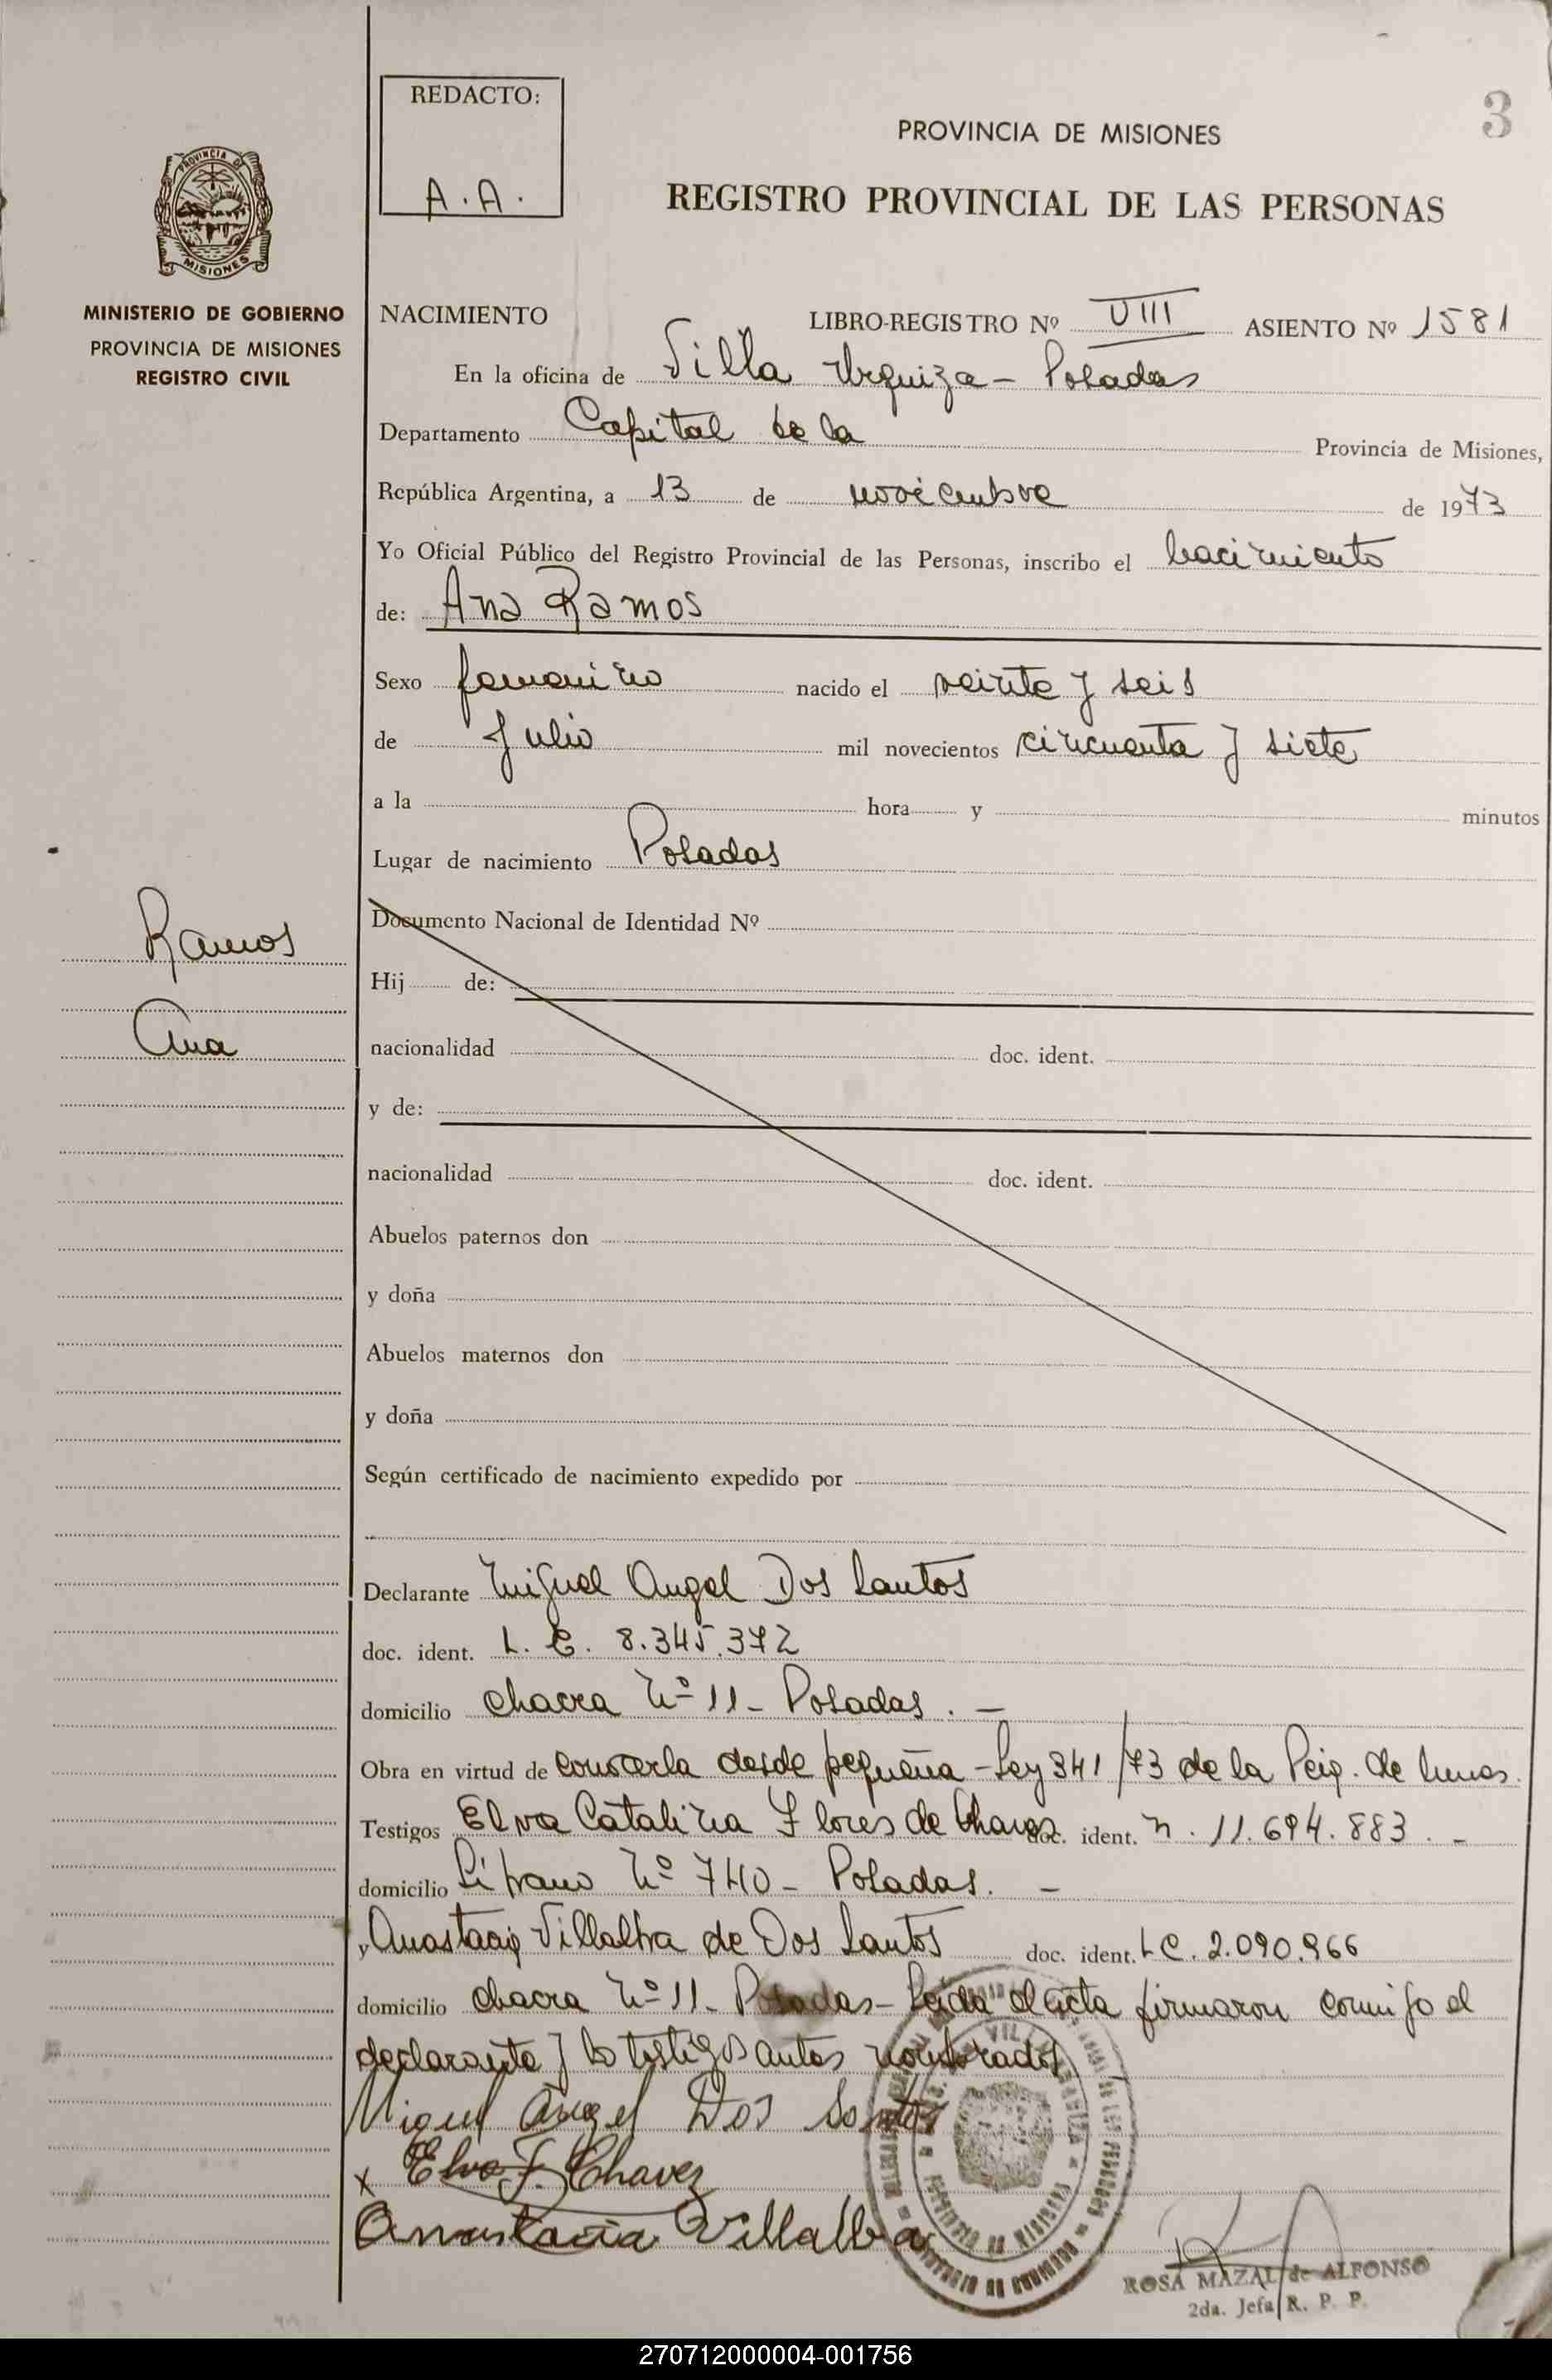 REDACTO:
A.A.
3
PROVINCIA DE MISIONES
REGISTRO PROVINCIAL DE LAS PERSONAS
PROVINCIA DE
MISIONES
MINISTERIO DE GOBIERNO
PROVINCIA DE MISIONES
REGISTRO CIVIL
NACIMIENTO LIBRO-REGISTRO Nº VIII ASIENTO Nº 1581
En la oficina de Villa Urquiza - Posadas
Departamento Capital de la Provincia de Misiones,
República Argentina, a 13 de noviembre de 1973
Yo Oficial Público del Registro Provincial de las Personas, inscribo el nacimiento
de: Ana Ramos
Sexo femenino nacido el veinte y seis
de Julio mil novecientos cincuenta y siete
a la hora y minutos
Lugar de nacimiento Posadas
Ramos
Ana
Documento Nacional de Identidad Nº
Hij de:
nacionalidad doc. ident.
y de:
nacionalidad doc. ident.
Abuelos paternos don
y doña
Abuelos maternos don
y doña
Según certificado de nacimiento expedido por
Declarante Miguel Angel Dos Santos
doc. ident. L. E. 8.345.372
domicilio chacra Nº 11 - Posadas. -
Obra en virtud de conocerla desde pequeña - Ley 341/73 de la
Testigos Elva Catalina Flores de Chavez doc. ident. 11.694.883. -
domicilio Nº 740 - Posadas. -
y Anastacia Villalba de Dos Santos doc. ident. L C. 2.090.966
domicilio chacra Nº 11 - Posadas - Leida el acta firmaron conmigo el
declarante y los testigos antes nombrados
Miguel Angel Dos Santos
x Elva F. Chavez
Anastacia Villalba
ROSA MAZAL de ALFONSO
2da. Jefa R. P. P.
270712000004-001756